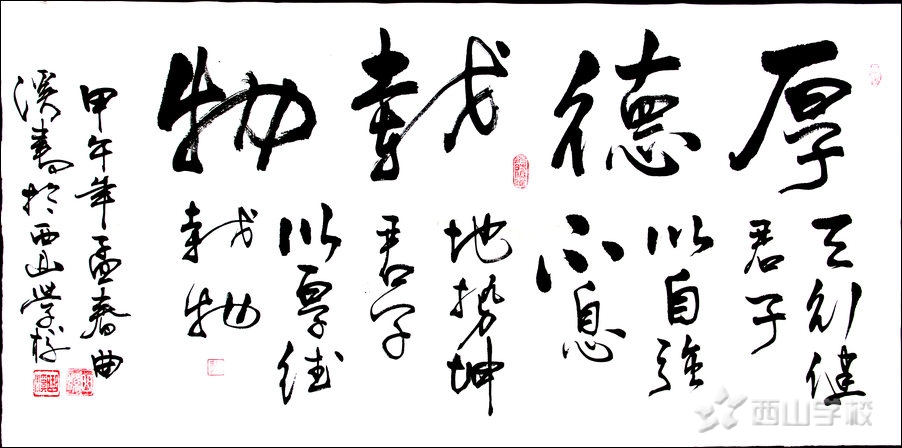 厚德载物
天行健
君子
以自強
不息
地势坤
君子
以厚德
载物
甲午年孟春曲
溪書於西山学校
西山学校